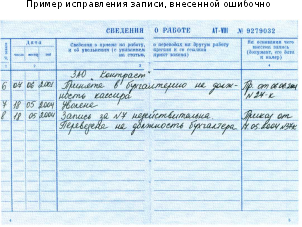 Пример исправления записи, внесенной ошибочно
СВЕДЕНИЯ О РАБОТЕ АТ-VIII № 9279032
Дата
Сведения о приеме на работу, о переводах на другую работу
и об увольнении (с указанием причин и со ссылкой
на статью, пункт закона)
На основании чего
внесена запись
(документ, его дата
и номер)
1 2 3 4
ЗАО "Контраст"
6 04 06 2001 Принята в бухгалтерию на долж- Пр. от 06.06.2001
ность кассира №27-к
7 18 05 2004 Уволена
8 18 05 2004 Запись за №7 недействительна. Приказ от
Переведена на должность бухгалтера 11.05.2004